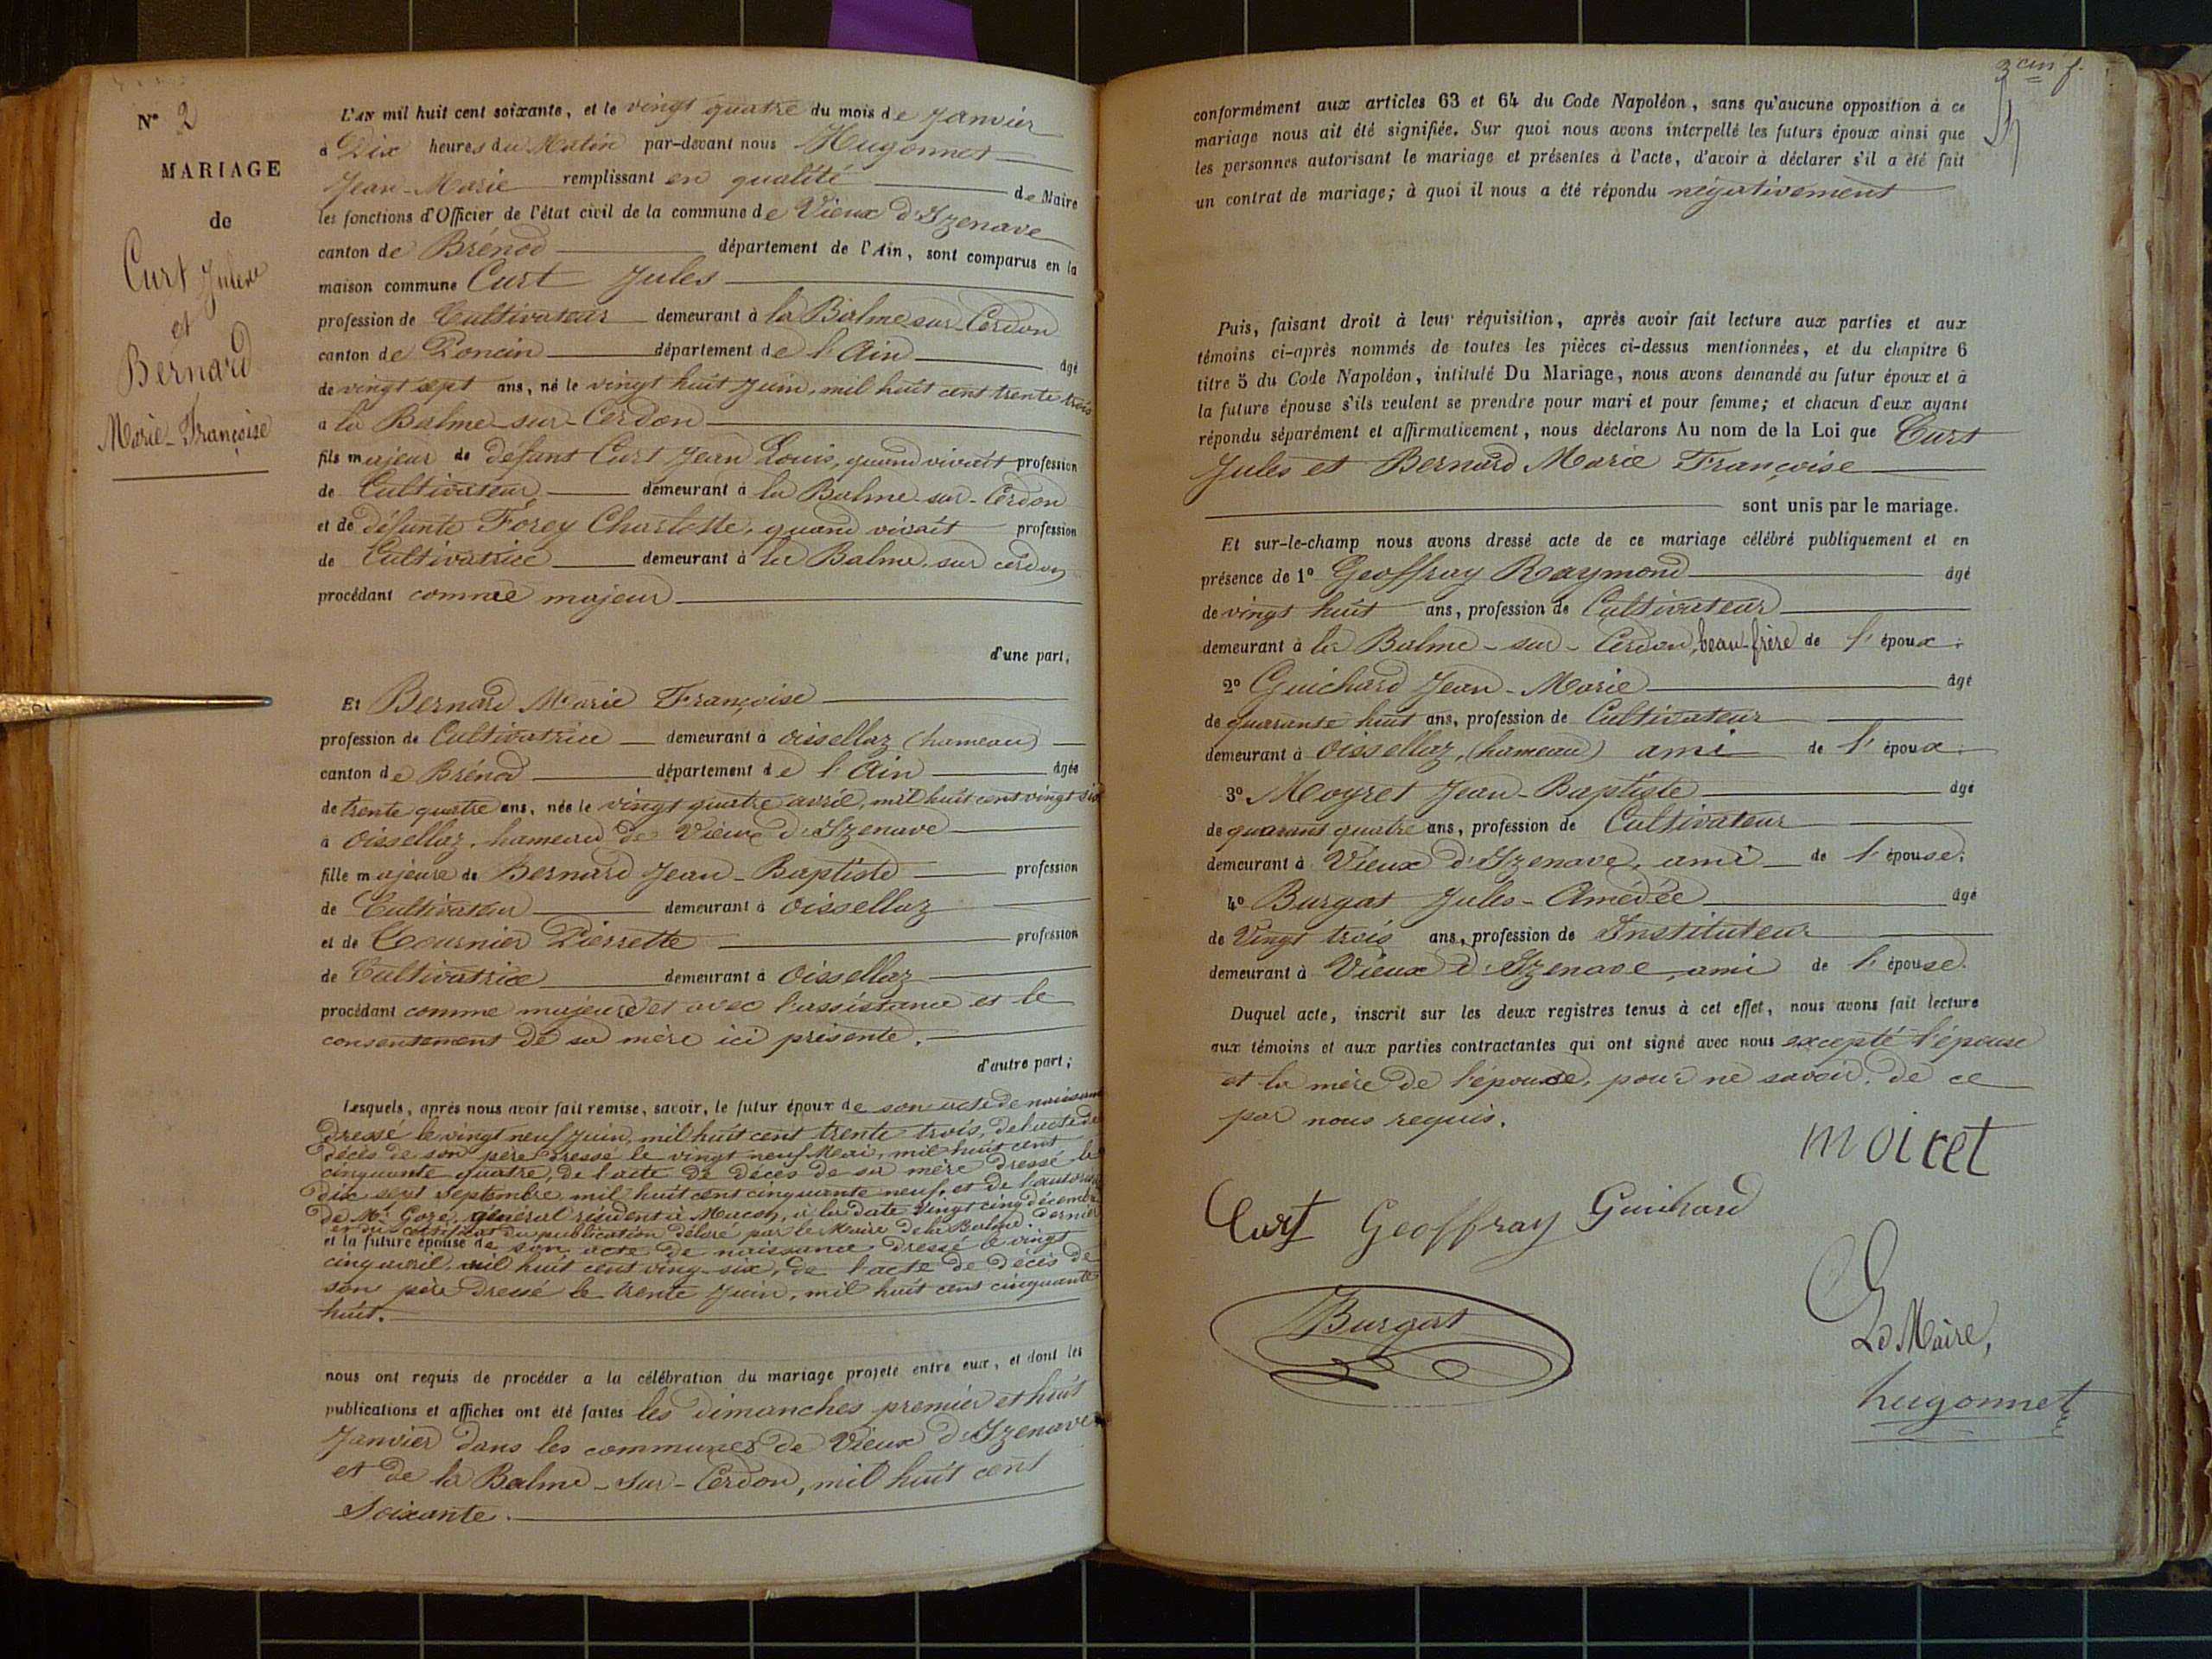 N° 2
MARIAGE
de
Curt Jules
et
Bernard
Marie-Françoise
L'AN mil huit cent soixante, et le vingt quatre du mois de Janvier
à Dix heures du Matin par-devant nous Hugonnet
Jean-Marie remplissant en qualité de Maire
les fonctions d'Officier de l'état civil de la commune de Vieux d'Izenave
canton de Brénod département de l'Ain, sont comparus en la
maison commune Curt Jules
profession de Cultivateur demeurant à la Balme sur-Cerdon
canton de Poncin département de l'Ain âgé
de vingt sept ans, né le vingt huit Juin, mil huit cent trente trois
à la Balme-sur-Cerdon
fils majeur de défunt Curt Jean Louis, quand vivait profession
de Cultivateur demeurant à la Balme-sur-Cerdon
et de défunte Forey Charlotte, quand vivait profession
de Cultivatrice demeurant à la Balme, sur cerdon
procédant comme majeur
d'une part,
Et Bernard Marie Françoise
profession de Cultivatrice demeurant à Oissellaz (hameau)
canton de Brénod département de l'Ain âgée
de trente quatre ans, née le vingt quatre avril, mil huit cent vingt six
à Oissellaz, hameau de Vieux d'Izenave
fille majeure de Bernard Jean-Baptiste profession
de Cultivateur demeurant à Oissellaz
et de Tournier Pierrette profession
de Cultivatrice demeurant à Oissellaz
procédant comme majeure et avec l'assistance et le
consentement de sa mère ici présente.
d'autre part;
Lesquels, après nous avoir fait remise, savoir, le futur époux de son acte de naissance
dressé le vingt neuf Juin, mil huit cent trente trois, de l'acte de
décès de son père dressé le vingt neuf Mai, mil huit cent
cinquante quatre, de l'acte de décès de sa mère dressé le
dix sept septembre mil huit cent cinquante neuf, et de
de Mr général résident à Macon, à la date vingt cinq décembre
dernier et du certificat du publication délivré par le Maire de la Balme.
et la future épouse de son acte de naissance dressé le vingt
cinq avril, mil huit cent ving-six, de l'acte de décès de
son père dressé le trente Juin, mil huit cent cinquante
huit.
nous ont requis de procéder à la célébration du mariage projeté entre eux, et dont les
publications et affiches ont été faites les dimanches premier et huit
Janvier dans les communes de Vieux d'Izenave
et de la Balme-sur-Cerdon, mil huit cent
Soixante.
conformément aux articles 63 et 64 du Code Napoléon, sans qu'aucune opposition à ce
mariage nous ait été signifiée. Sur quoi nous avons interpellé les futurs époux ainsi que
les personnes autorisant le mariage et présentes à l'acte, d'avoir à déclarer s'il a été fait
un contrat de mariage; à quoi il nous a été répondu négativement
Puis, faisant droit à leur réquisition, après avoir fait lecture aux parties et aux
témoins ci-après nommés de toutes les pièces ci-dessus mentionnées, et du chapitre 6
titre 5 du Code Napoléon, intitulé Du Mariage, nous avons demandé au futur époux et à
la future épouse s'ils veulent se prendre pour mari et pour femme; et chacun d'eux ayant
répondu séparément et affirmativement, nous déclarons Au nom de la Loi que Curt
Jules et Bernard Marie Françoise
sont unis par le mariage.
Et sur-le-champ nous avons dressé acte de ce mariage célébré publiquement et en
présence de 1° Geoffray Raymond âgé
de vingt huit ans, profession de Cultivateur
demeurant à la Balme-sur-Cerdon, beau-frère de l'époux.
2° Guichard Jean-Marie âgé
de quarante huit ans, profession de Cultivateur
demeurant à Oissellaz, (hameau) ami de l'époux.
3° Moyret Jean-Baptiste âgé
de quarant quatre ans, profession de Cultivateur
demeurant à Vieux d'Izenave, ami de l'épouse.
4° Burgat Jules-Amédée âgé
de Vingt trois ans, profession de Instituteur
demeurant à Vieux d'Izenave, ami de l'épouse.
Duquel acte, inscrit sur les deux registres tenus à cet effet, nous avons fait lecture
aux témoins et aux parties contractantes qui ont signé avec nous excepté l'épouse
et la mère de l'épouse, pour ne savoir, de ce
par nous requis.
moiret
Curt Geoffray Guichard
Burgat
Le Maire,
hugonnet